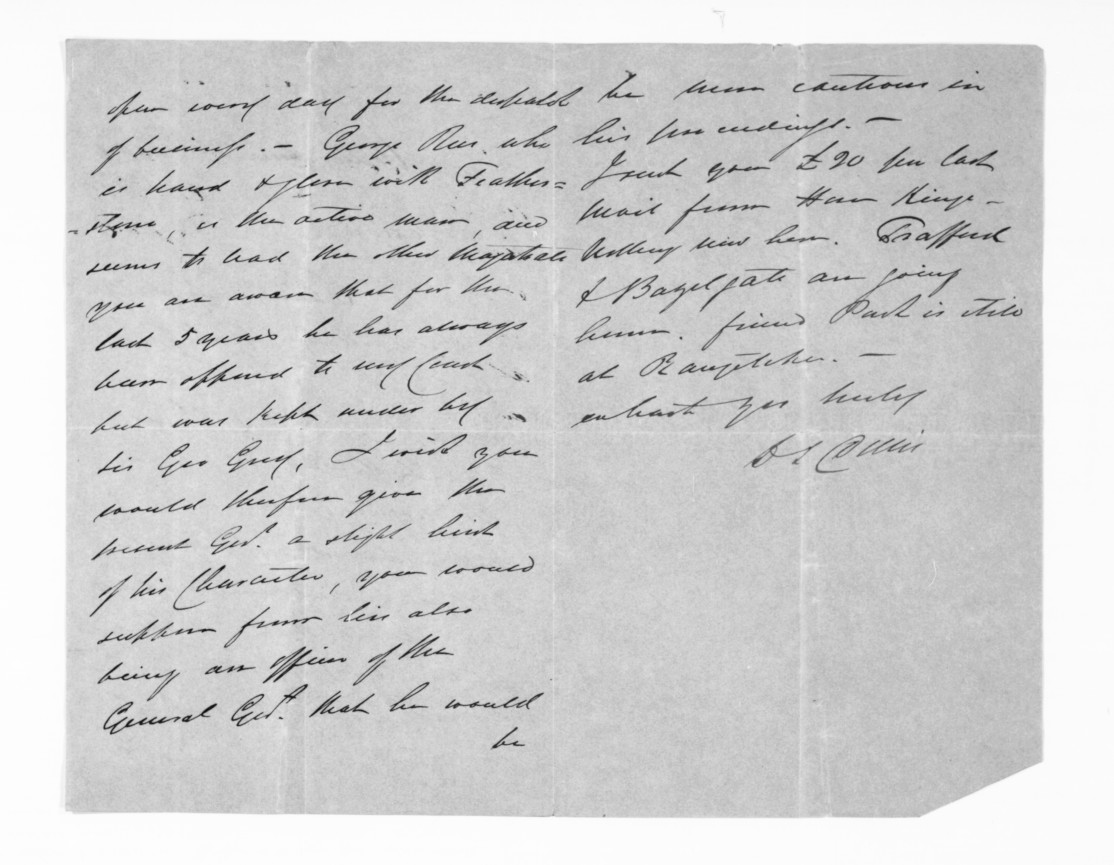 open every day for the despatch
of business. — George Rees who
is hand & glove with Feather=
=stone, is the active man, and
seems to lead the other Magistrates
you are aware that for the
last 5 years he has always
been opposed to my Court
but was kept under by
Sir Geo Grey, I wish you
would therefore give the
present Govt. a slight hint
of his Character, you would
suppose from his also
being an officer of the
General Govt. that he would
be
be more cautious in
his proceedings. —
I sent you £20 per last
Mail from Hon King -
Nothing new here. Trafford
& are going
home. friend Park is still
at Rangitikei. —
in haste yrs truly
D S